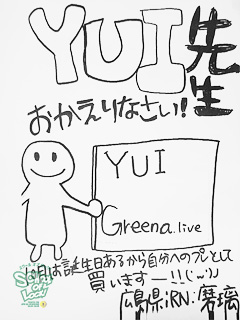 YUI先生
おかえりなさい!
YUI
Greena.live
月は誕生日あるから自分へのプレとして
買います—!!(˙ᵕ˙)
広島県 RN:磨璃